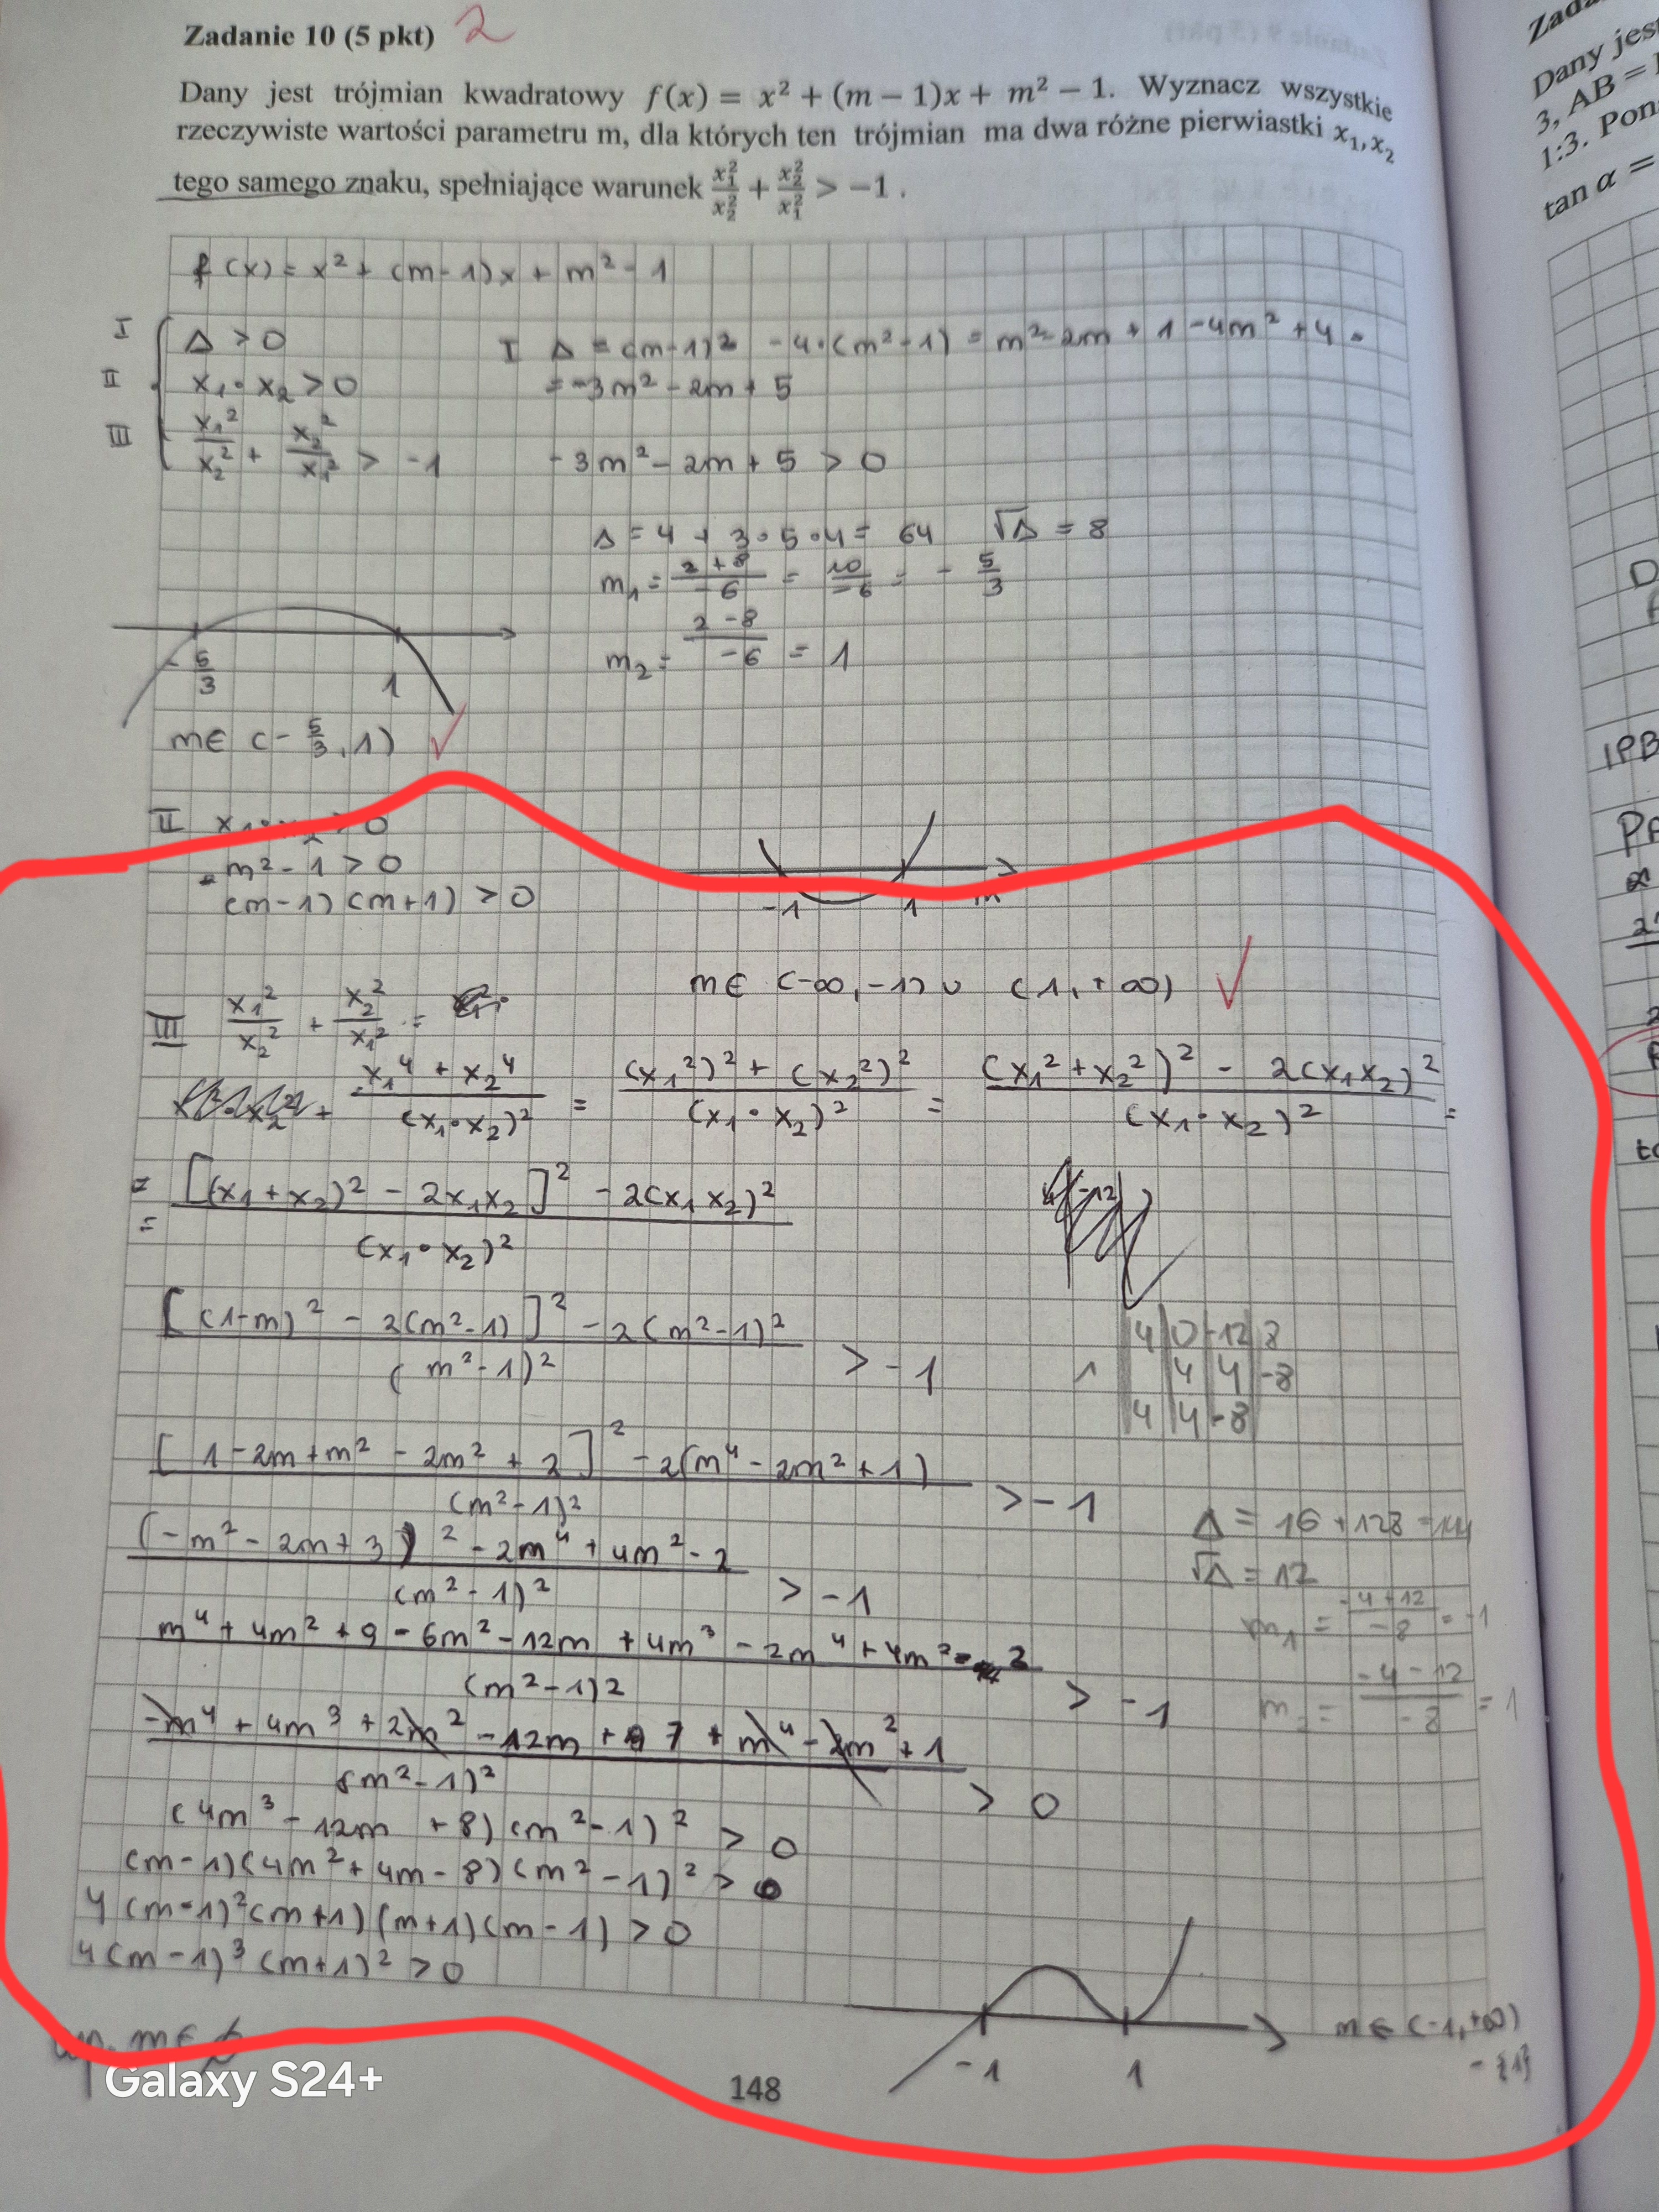 Zadanie 10 (5 pkt) 2
Dany jest trójmian kwadratowy f(x) = x² + (m − 1)x + m² − 1. Wyznacz wszystkie
rzeczywiste wartości parametru m, dla których ten trójmian ma dwa różne pierwiastki x₁, x₂
tego samego znaku, spełniające warunek x₁²/x₂² + x₂²/x₁² > −1 .
f(x) = x² + (m-1)x + m² - 1
I Δ > 0
II x₁·x₂ > 0
III x₁²/x₂² + x₂²/x₁² > -1
I Δ = (m-1)² - 4·(m²-1) = m² - 2m + 1 - 4m² + 4 =
= -3m² - 2m + 5
-3m² - 2m + 5 > 0
Δ = 4 + 3·5·4 = 64 √Δ = 8
m₁ = (2+8)/-6 = 10/-6 = - 5/3
m₂ = (2-8)/-6 = 1
-5/3 1
m∈ (-5/3, 1) ✓
II x₁·x₂ > 0
m² - 1 > 0
(m-1)(m+1) > 0
-1 1 m
m∈ (-∞, -1) ∪ (1, +∞) ✓
III x₁²/x₂² + x₂²/x₁² =
(x₁⁴ + x₂⁴)/(x₁·x₂)² = ((x₁²)² + (x₂²)²)/(x₁·x₂)² = ((x₁² + x₂²)² - 2(x₁x₂)²)/(x₁·x₂)² =
= ([(x₁+x₂)² - 2x₁x₂]² - 2(x₁x₂)²)/(x₁·x₂)²
([(1-m)² - 2(m²-1)]² - 2(m²-1)²)/(m²-1)² > -1
4 0 -12 8
1 4 4 -8
4 4 -8
([1 - 2m + m² - 2m² + 2]² - 2(m⁴ - 2m² + 1))/(m²-1)² > -1
((-m² - 2m + 3)² - 2m⁴ + 4m² - 2)/(m²-1)² > -1
Δ = 16 + 128 = 144
√Δ = 12
m₁ = (-4+12)/-8 = -1
m₂ = (-4-12)/-8 = 1
(m⁴ + 4m² + 9 - 6m² - 12m + 4m³ - 2m⁴ + 4m² - 2)/(m²-1)2 > -1
(-m⁴ + 4m³ + 2m² - 12m + 7 + m⁴ - 2m² + 1)/(m²-1)² > 0
(4m³ - 12m + 8)(m²-1)² > 0
(m-1)(4m² + 4m - 8)(m²-1)² > 0
4(m-1)²(m+1)(m+1)(m-1) > 0
4(m-1)³(m+1)² > 0
-1 1
m∈ (-1, +∞)
- {1}
m∈ ∅
148
Galaxy S24+
Zada
Dany jes
3, AB =
1:3. Pon
tan α =